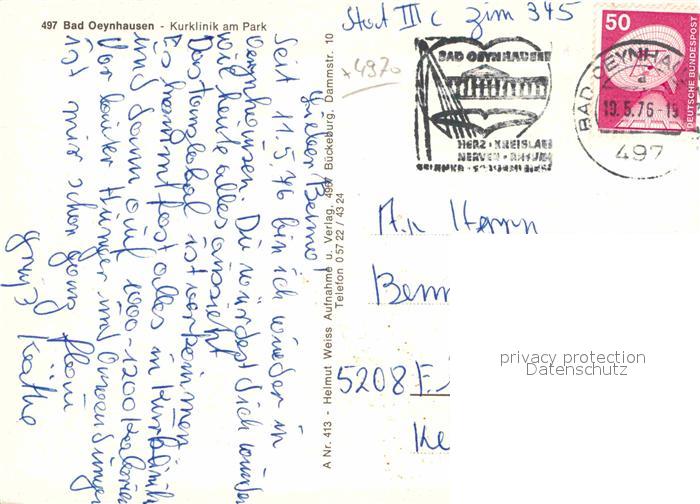 497 Bad Oeynhausen - Kurklinik am Park
Stat III c Zim 345
+4970
50
DEUTSCHE BUNDESPOST
BAD OEYNHAUSEN
HERZ · KREISLAUF
NERVEN · RHEUMA
BAD OEYNHAU
a
19.5.76-19
497
Lieber Benno,
seit 11.5.76 bin ich wieder in
Oeynhausen. Du würdest Dich wundern
wie heute alles aussieht
Das Lokal ist vorkommen
Es kommt fast alles in Kurklinik
und dann auf 1000-1200 Kalorien
Vor lauter Hunger und
ist mir schon ganz flau
Gruß Käthe
A Nr. 413 - Helmut Weiss Aufnahme u. Verlag, 4967 Bückeburg, Dammstr. 10
Telefon 0 57 22 / 43 24
An Herrn
Benn
5208 E
Ke
privacy protection
Datenschutz